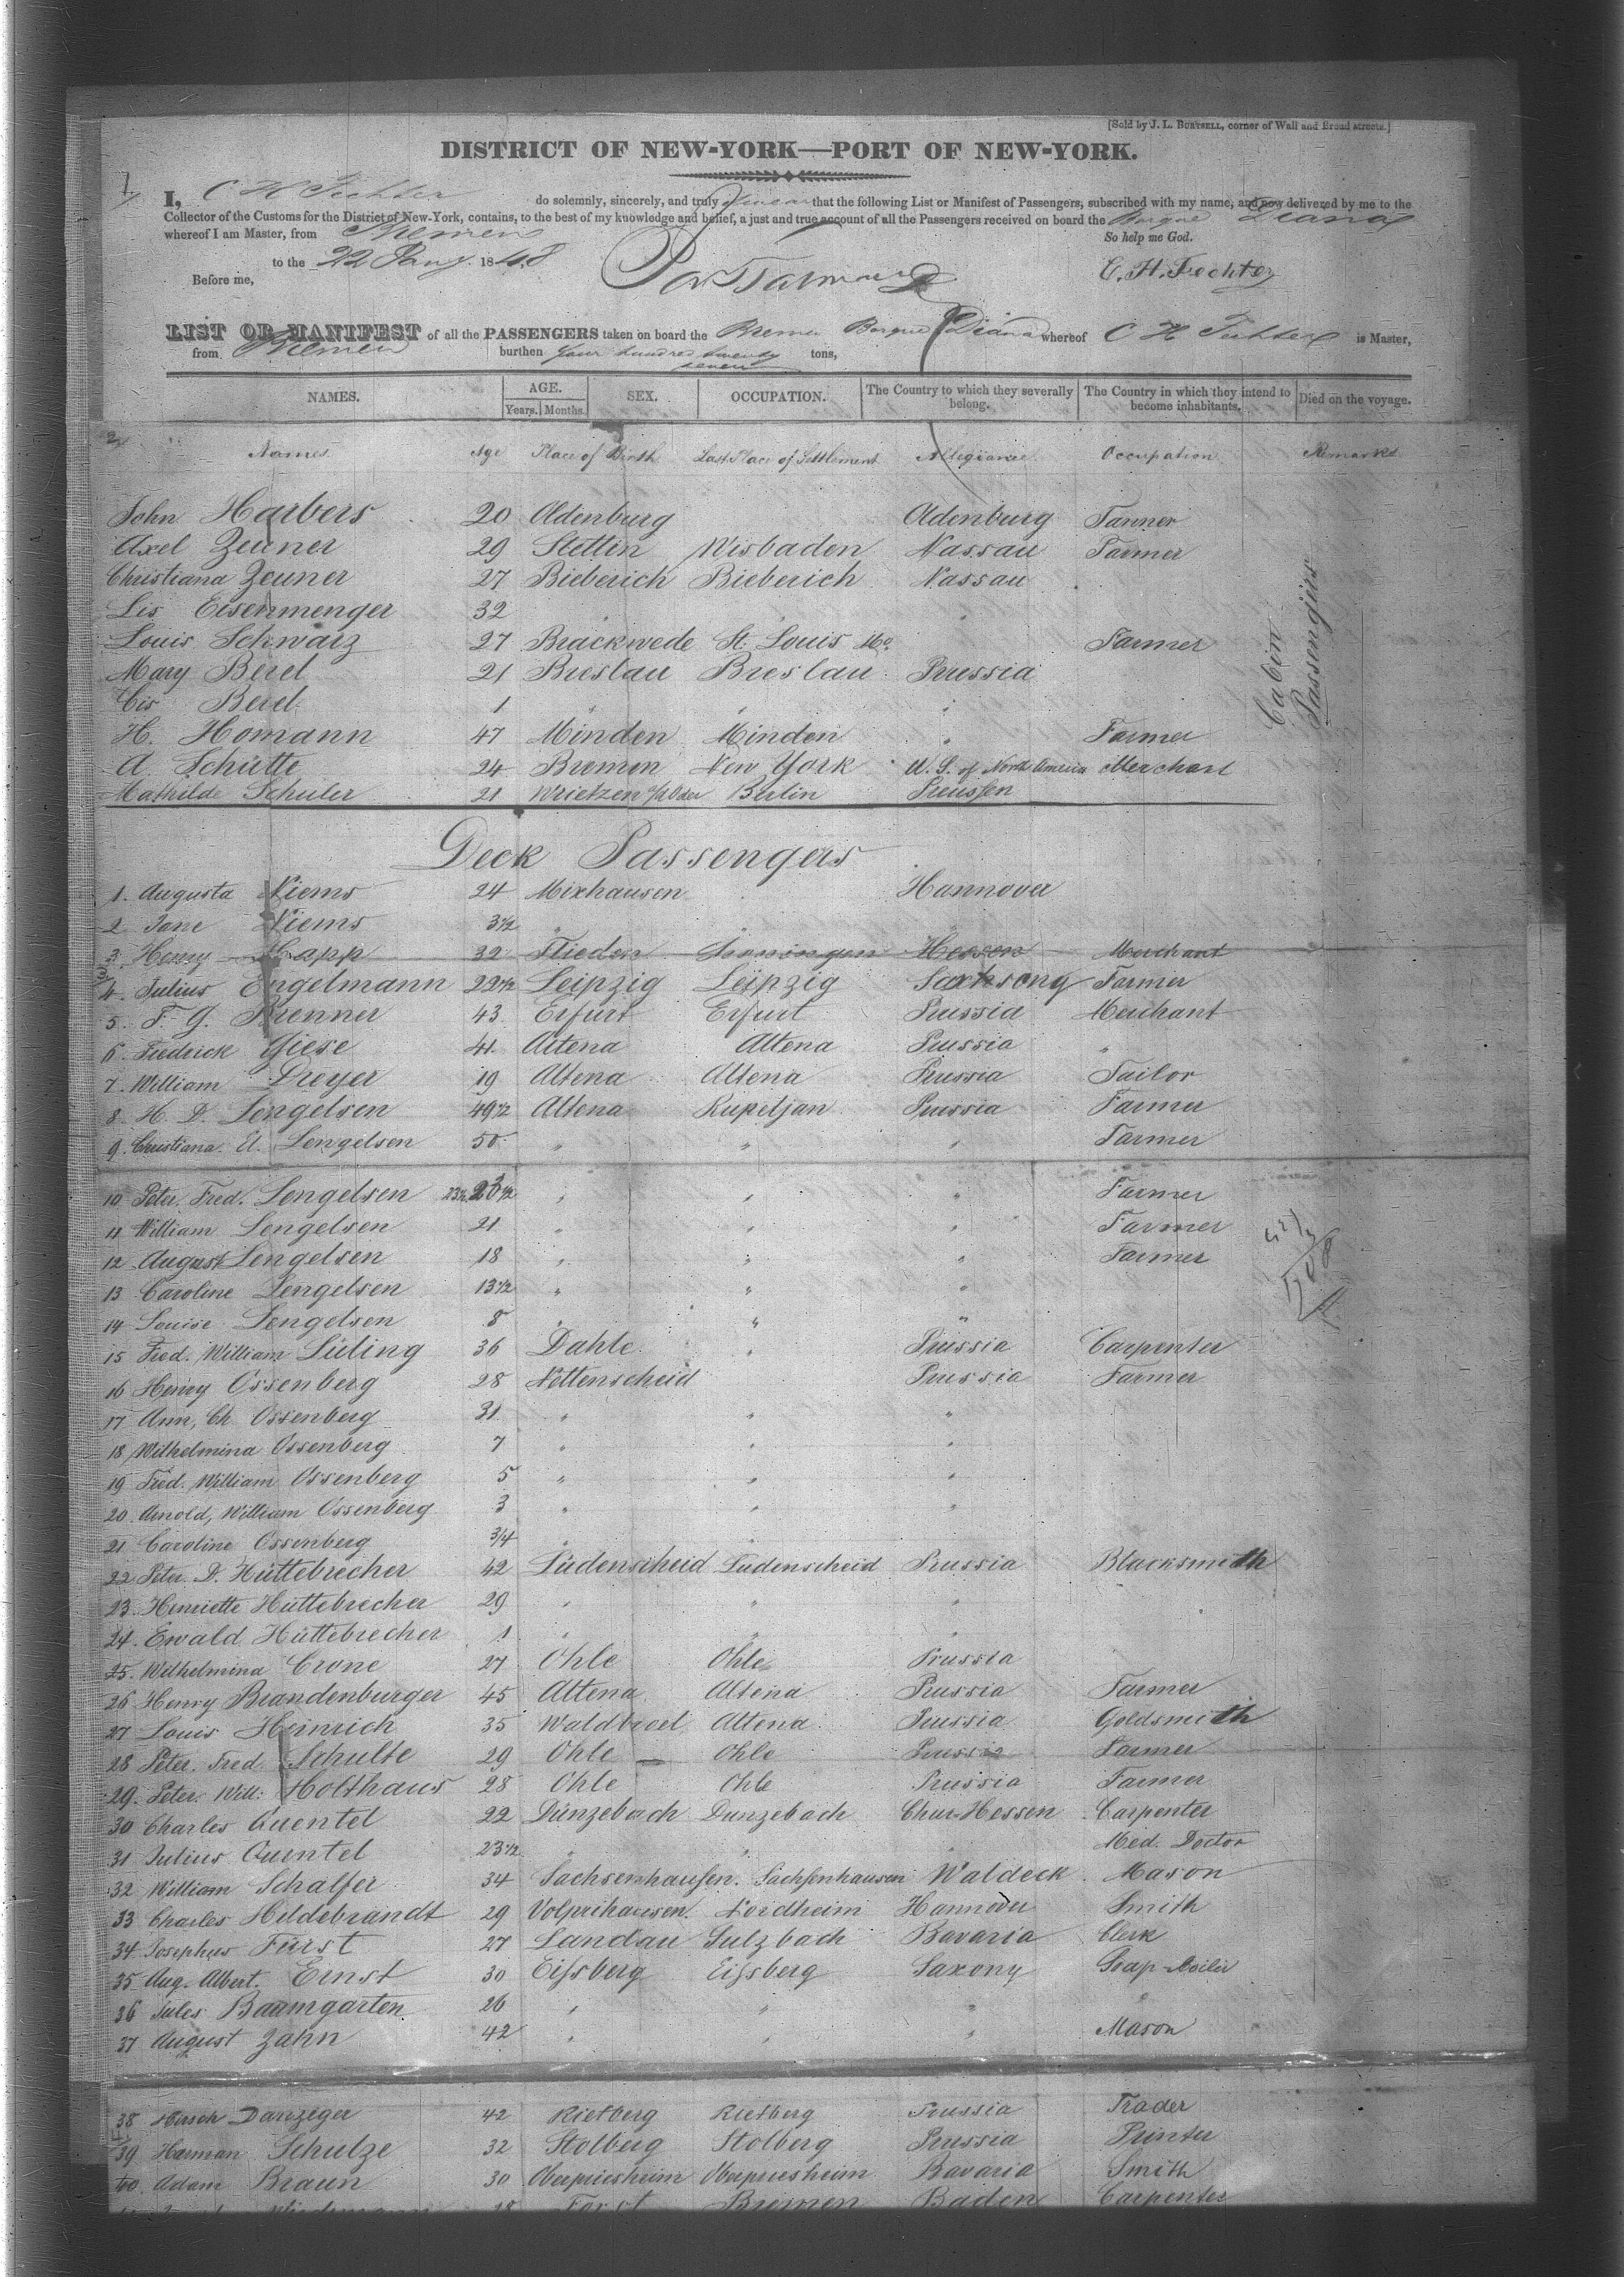 [Sold by J. L. BURTSELL, corner of Wall and Broad streets.]
DISTRICT OF NEW-YORK—PORT OF NEW-YORK.
I, C H Fechter do solemnly, sincerely, and truly swear that the following List or Manifest of Passengers, subscribed with my name, and now delivered by me to the
Collector of the Customs for the District of New-York, contains, to the best of my knowledge and belief, a just and true account of all the Passengers received on board the Barque Diana
whereof I am Master, from Bremen So help me God.
to the 22 Jany. 1848 C. H. Fechter
Before me,
LIST OR MANIFEST of all the PASSENGERS taken on board the Bremer Barque Diana whereof C H Fechter is Master,
from Bremen burthen four hundred twenty seven tons,
NAMES. AGE. Years. Months. SEX. OCCUPATION. The Country to which they severally belong. The Country in which they intend to become inhabitants. Died on the voyage.
Names Age Place of Birth Last Place of Settlement Allegiance Occupation Remarks
John Harbers 20 Oldenburg Oldenburg Farmer
Axel Zeuner 29 Stettin Wisbaden Nassau Farmer
Christiana Zeuner 27 Bieberich Bieberich Nassau
Lis Eisenmenger 32 " " "
Louis Schwarz 27 Brackwede St. Louis Mo. Farmer
Mary Berel 21 Breslau Breslau Prussia
Cis Berel 1 " " "
H. Homann 47 Minden Minden " Farmer
A. Schütte 24 Bremen New York U. S. of North America Merchant
Mathilde Schuler 21 Wrietzen a/Oder Berlin Preussen
Cabin Passengers
Deck Passengers
1. Augusta Niems 24 Mixhausen Hannover
2. Jane Niems 3½ "
3. Henry Happ 32 Flieden Hessen Merchant
4. Julius Engelmann 22½ Leipzig Leipzig Saxony Farmer
5. F. G. Brenner 43 Erfurt Erfurt Prussia Merchant
6. Fredrick Giese 41 Altena Altena Prussia "
7. William Dreyer 19 Altena Altena Prussia Tailor
8. H. D. Lengelsen 49½ Altena Rupeljan Prussia Farmer
9. Christiana El. Lengelsen 50 " " " Farmer
10 Peter. Fred. Lengelsen 23½ " " " Farmer
11 William Lengelsen 21 " " " Farmer
12 August Lengelsen 18 " " " Farmer
13 Caroline Lengelsen 13½ " " "
14 Louise Lengelsen 8 " " "
15 Fred. William Lüling 36 Dahle " Prussia Carpenter
16 Henry Ossenberg 28 Nettenscheid Prussia Farmer
17 Ann, Ch. Ossenberg 31 " " "
18 Wilhelmina Ossenberg 7 " " "
19 Fred. William Ossenberg 5 " " "
20 Arnold, William Ossenberg 3 " " "
21 Caroline Ossenberg 3/4 " "
22 Peter. D. Hüttebrecher 42 Lüdenscheid Lüdenscheid Prussia Blacksmith
23. Henriette Hüttebrecher 29 " " "
24. Ewald Hüttebrecher 1 " " "
25. Wilhelmina Crone 27 Ohle Ohle Prussia
26 Henry Brandenburger 45 Altena Altena Prussia Farmer
27 Louis Heinrich 35 Waldbroel Altena Prussia Goldsmith
28 Peter. Fred Schulte 29 Ohle Ohle Prussia Farmer
29. Peter. Will: Holthaus 28 Ohle Ohle Prussia Farmer
30 Charles Quentel 22 Dünzebach Dunzebach Chur-Hessen Carpenter
31 Julius Quentel 23½ " " " Med. Doctor
32 William Schalfer 34 Sachsenhausen. Sachsenhausen Waldeck Mason
33 Charles Hildebrandt 29 Volprihausen. Nordheim Hannover Smith
34 Josephus Fürst 27 Landau Sulzbach Bavaria Clerk
35 Aug. Albert. Ernst 30 Eissberg Eissberg Saxony Soap-Boiler
36 Jules Baumgarten 26 " " " "
37 August Zahn 42 " " " Mason
38 Hirsch Danzeger 42 Rietberg Rietberg Prussia Trader
39 Harman Schulze 32 Stolberg Stolberg Prussia Printer
40. Adam Braun 30 Oberpriesheim Oberpriesheim Bavaria Smith
Forst Bremen Baden Carpenter